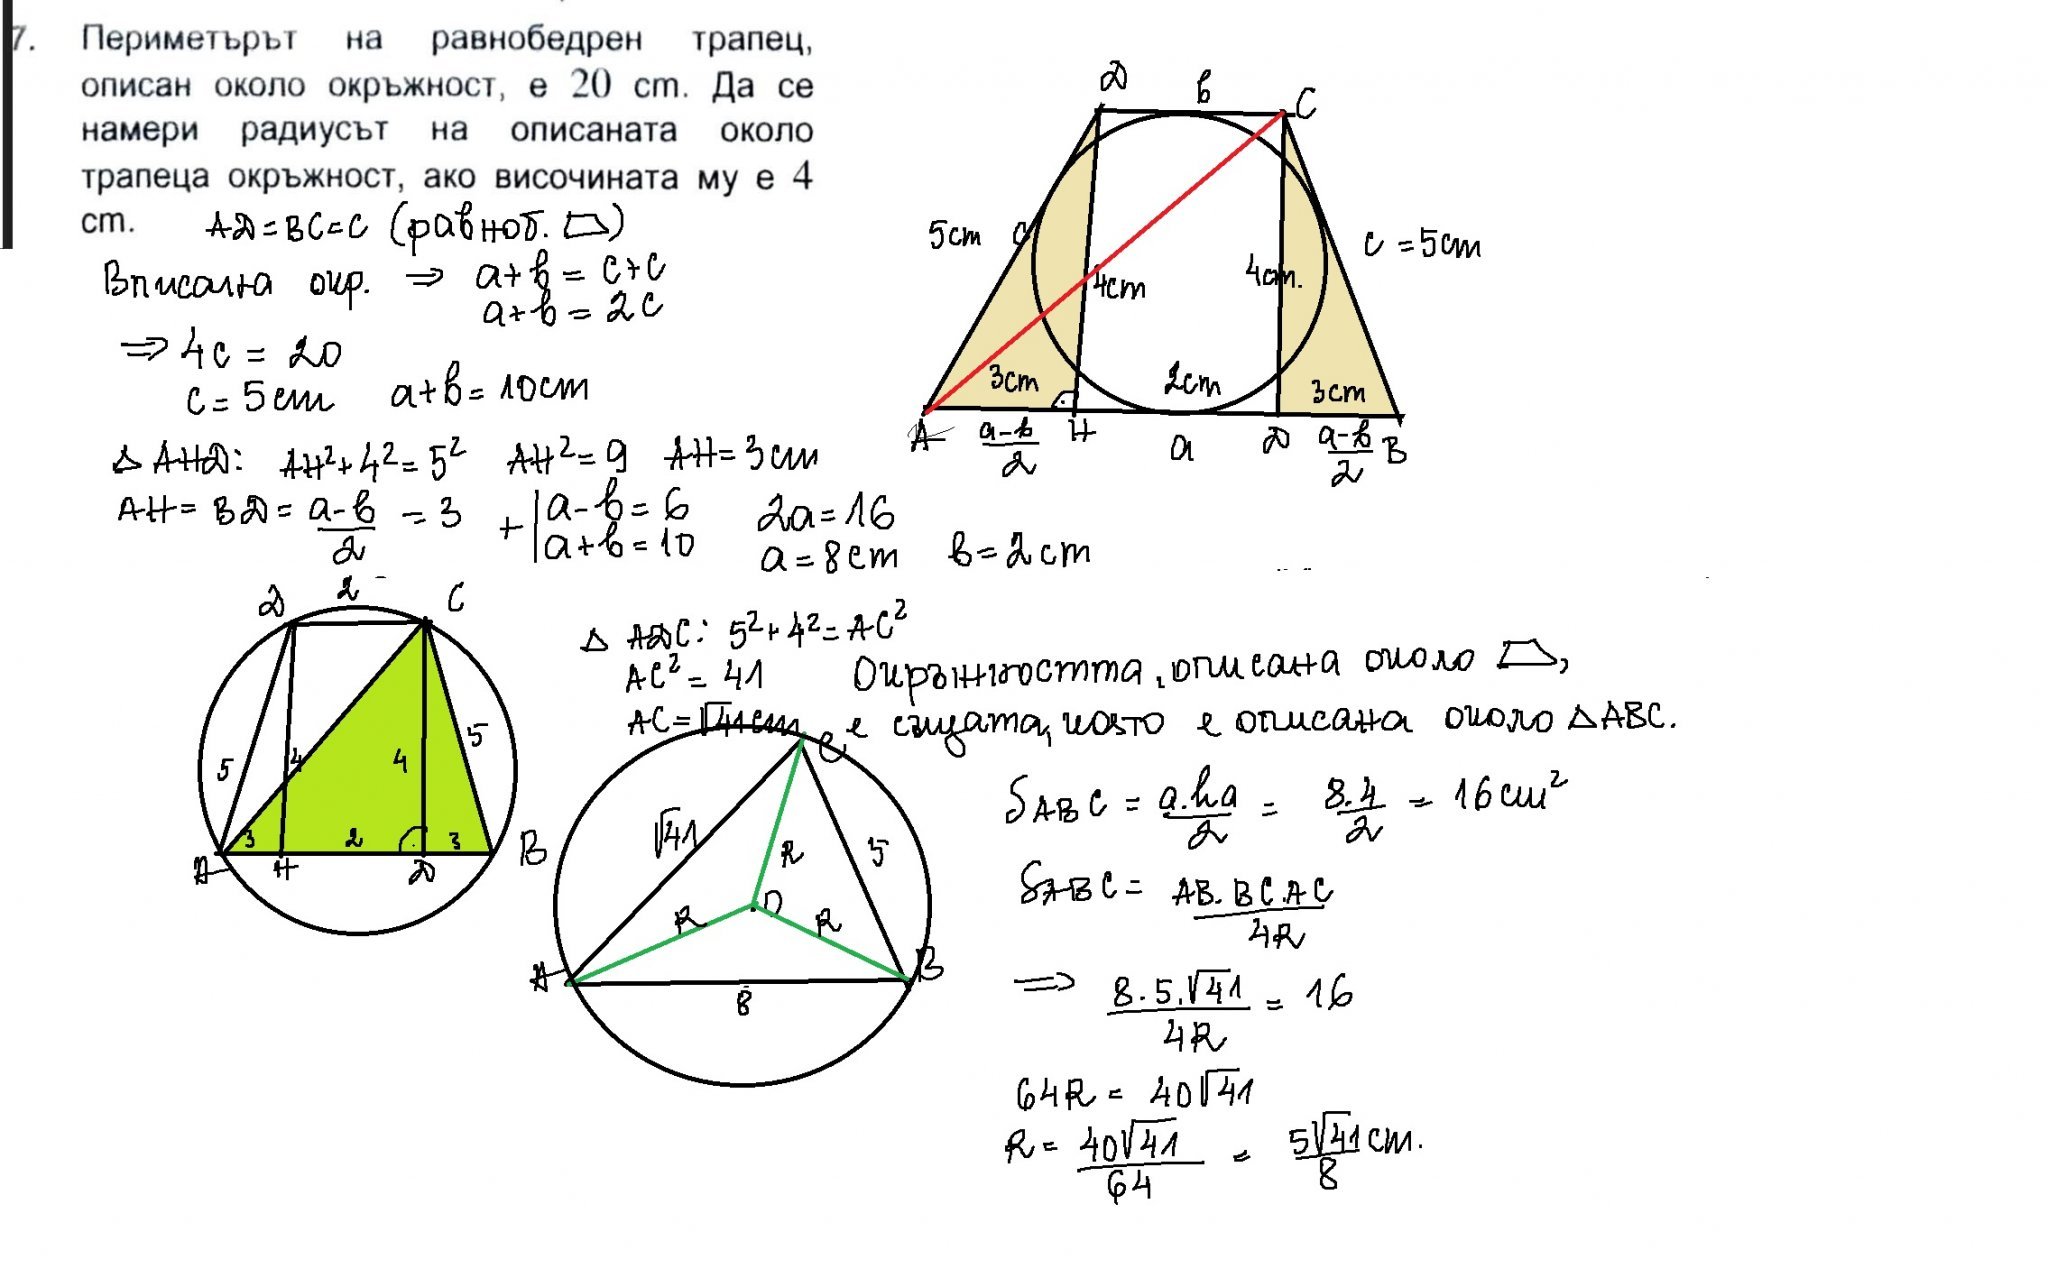 7. Периметърът на равнобедрен трапец,
описан около окръжност, е 20 cm. Да се
намери радиусът на описаната около
трапеца окръжност, ако височината му е 4
cm.
AD = BC = C (равноб. ⏢)
Вписана окр. ⇒ a+b = c+c
a+b = 2c
⇒ 4c = 20
c = 5cm a+b = 10cm
△ AHD: AH²+4²=5² AH²=9 AH=3cm
AH = BD = (a-b)/2 = 3
+ | a-b = 6
| a+b = 10
2a = 16
a = 8cm b = 2cm
D b C
5cm c 4cm 4cm. c = 5cm
3cm 2cm 3cm
A (a-b)/2 H a D (a-b)/2 B
D 2 C
5 4 4 5
3 2 3
A H D B
△ ADC: 5²+4²=AC²
AC² = 41
AC = √41 cm
Окръжността, описана около ⏢,
е същата, която е описана около △ABC.
C
√41 R 5
R O R
A 8 B
S ABC = a.ha/2 = 8.4/2 = 16cm²
S ABC = AB.BC.AC/4R
⇒ 8.5.√41/4R = 16
64R = 40√41
R = 40√41/64 = 5√41/8 cm.